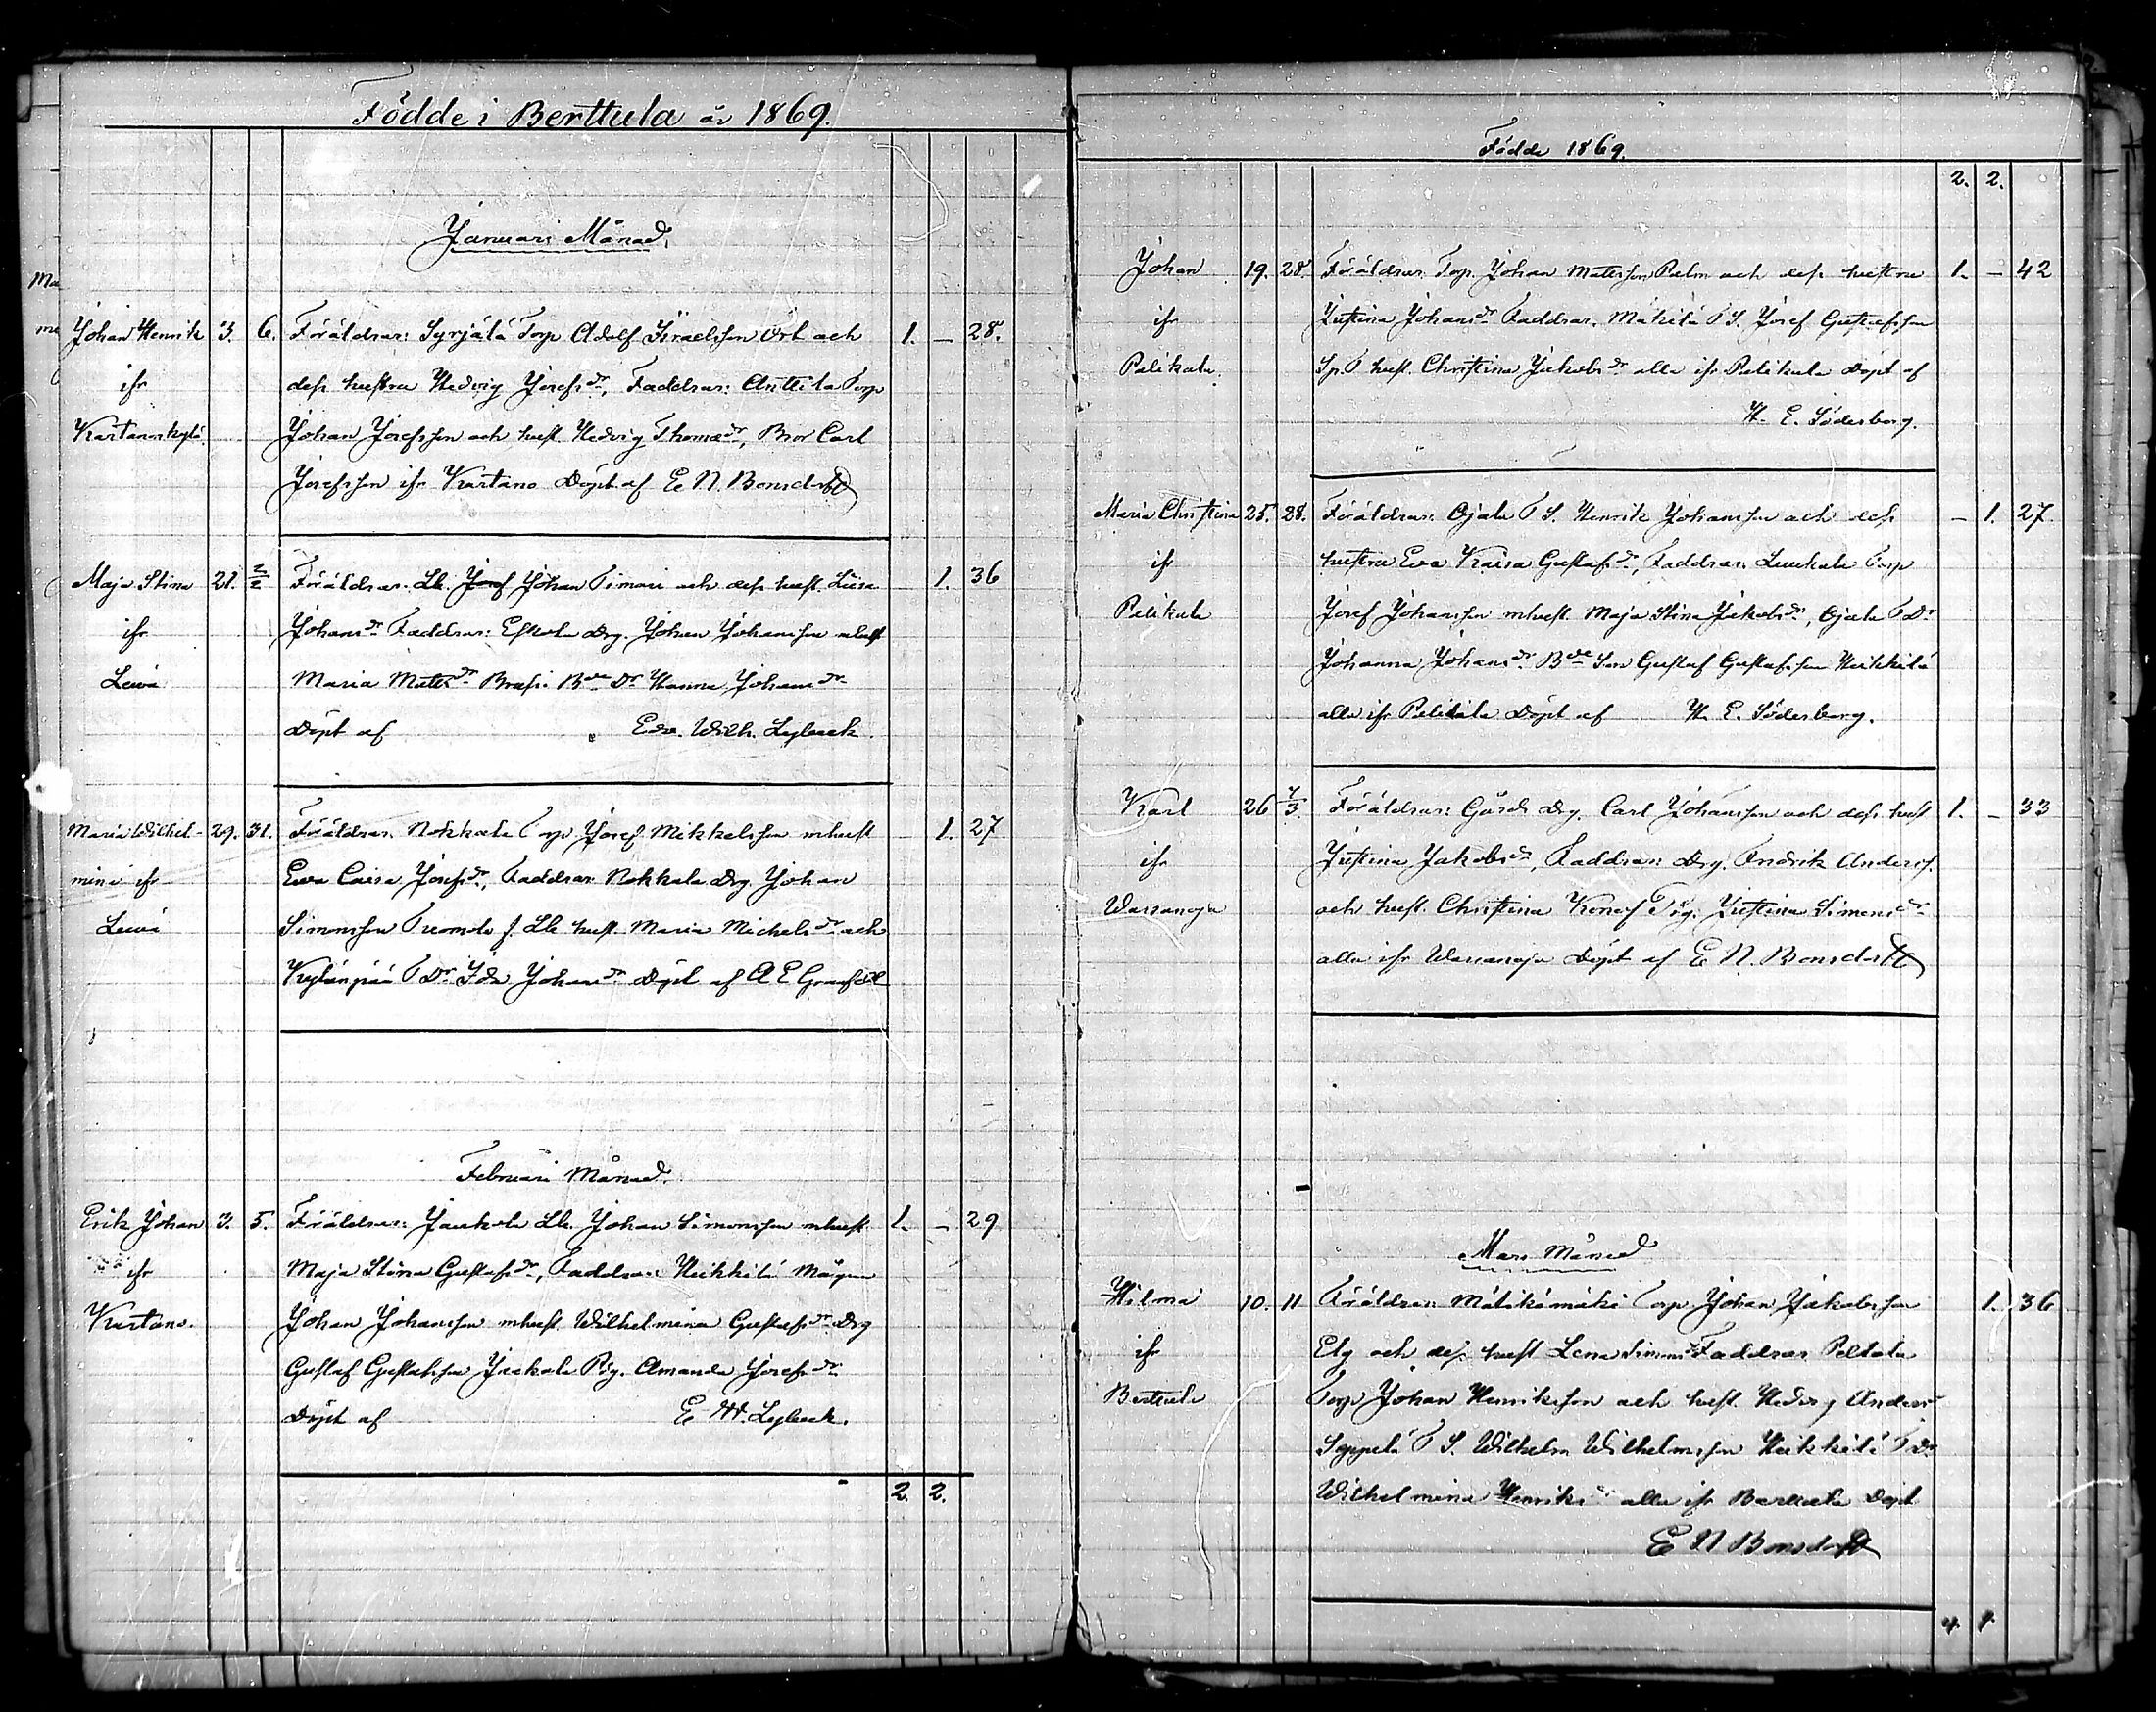 Födde i Berttula år 1869.
Januari Månad.
Johan Henrik 3. 6. Föräldrar: Syrjälä Torp Adolf Israelsson Ört och 1. – 28.
ifr dess hustru Hedvig Josefsdr, Faddrar: Anttila Torp
Kartanonkylä Johan Josefsson och hust. Hedvig Thomædr, Bror Carl
Josefsson ifr Kartano Döpt af E N. Bonsdorff
Maja Stina 21. 2/2 Föräldrar. Lb. Josef Johan Simari och dess hust. Luisa 1. 36
ifr Johansdr Faddrar: Eskola Drg. Johan Johansson mhust
Lewä Maria Matsdr Brasi Bde Dr Hanna Johansdr
Döpt af Edv. Wilh. Lybeck
Maria Wilhel- 29. 31. Föräldrar. Nokkala Torp. Josef Mikkelsson mhust 1. 27
mina ifr Ewa Caisa Josefsdr, Faddrar Nokkala Drg. Johan
Lewä Simonsson Tuomola f. Lb hust. Maria Michelsdr och
Kylänpää T Dr Ida Johansdr Döpt af A E Granfelt
Februari Månad.
Erik Johan 3. 5. Föräldrar: Jaakola Lb. Johan Simonsson mhust 1. – 29
ifr Maja Stina Gustafsdr, Faddrar: Heikkilä Mågen
Kartano. Johan Johansson mhust Wilhelmina Gustafsdr Drg
Gustaf Gustafsson Jaakola Pig. Amanda Josefsdr
Döpt af E W. Lybeck.
2. 2.
Födde 1869.
2. 2.
Johan 19. 28. Föräldrar: Torp. Johan Matsson Palm och dess hustru 1. – 42
ifr Justina Johansdr Faddrar. Mäkilä T S. Josef Gustafsson
Pelikala. Sp. T hust. Christina Jakobsdr alla ifr Pelikala Döpt af
H. E. Söderborg.
Maria Christina 25. 28. Föräldrar: Ojala T S. Henrik Johansson och dess – 1. 27.
ifr hustru Eva Kaisa Gustafsdr, Faddrar: Luukala Torp
Pelikala Josef Johansson mhust. Maja Stina Jakobsdr, Ojala T Dr
Johanna Johansdr Bde Son Gustaf Gustafsson Heikkilä
alla ifr Pelikala Döpt af H. E. Söderborg.
Karl 26 7/3. Föräldrar: Gårds Drg. Carl Johansson och dess hust 1. – 33
ifr Justina Jakobsdr, Faddrar: Drg. Fredrik Anderss.
Wassanoja och hust. Christina Pig. Justina Simonsdr
alla ifr Wassanoja Döpt af E N. Bonsdorff
Mars Månad
Hilma 10. 11 Föräldrar: Mätikömäki Torp. Johan Jakobsson 1. 36
ifr Elg och dess hust Lena Simonsdr Faddrar. Peltola
Berttula Torp Johan Henriksson och hust. Hedvig Andersdr
Seppälä T S. Wilhelm Wilhelmsson Heikkilä T Dr
Wilhelmina Henriksdr alla ifr Berttula Döpt
E N Bonsdorff
4. 1.